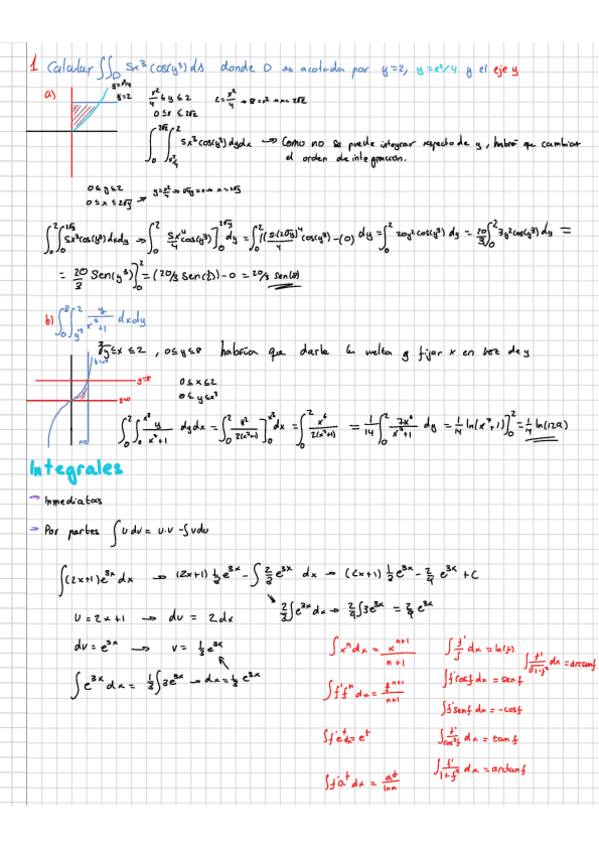 1 Calcular ∬_D 5x³ cos(y³) ds donde D es acotada por y=2, y=x²/4 y el eje y
a)
y=x²/4
y=2
x²/4 ≤ y ≤ 2
0 ≤ x ≤ 2√2
2 = x²/4 → 8 = x² → x = 2√2
∫₀^{2√2} ∫_{x²/4}^2 5x³ cos(y³) dy dx → Como no se puede integrar respecto de y, habrá que cambiar
el orden de integración.
0 ≤ y ≤ 2
0 ≤ x ≤ 2√y → y = x²/4 → √4y = x → x = 2√y
∫₀² ∫₀^{2√y} 5x³ cos(y³) dx dy → ∫₀² 5x⁴/4 cos(y³) ]₀^{2√y} dy = ∫₀² (5·(2√y)⁴/4 cos(y³) - (0) dy = ∫₀² 20y² cos(y³) dy = 20/3 ∫₀² 3y² cos(y³) dy =
= 20/3 Sen(y³) ]₀² = (20/3 Sen(8)) - 0 = 20/3 sen(8)
b) ∫₀⁸ ∫_{∛y}² y/x⁷+1 dx dy
∛y ≤ x ≤ 2 , 0 ≤ y ≤ 8 habría que darle la vuelta y fijar x en vez de y
y=8
y=0
0 ≤ x ≤ 2
0 ≤ y ≤ x³
∫₀² ∫₀^{x³} y/x⁷+1 dy dx = ∫₀² y²/2(x⁷+1) ]₀^{x³} dx = ∫₀² x⁶/2(x⁷+1) = 1/14 ∫₀² 7x⁶/x⁷+1 dy = 1/14 ln(x⁷+1) ]₀² = 1/14 ln(129)
Integrales
→ Inmediatas
→ Por partes ∫ u dv = u·v - ∫ v du
∫ (2x+1) e^{3x} dx → (2x+1) 1/3 e^{3x} - ∫ 2/3 e^{3x} dx → (2x+1) 1/3 e^{3x} - 2/9 e^{3x} + C
2/3 ∫ e^{3x} dx → 2/9 ∫ 3e^{3x} = 2/9 e^{3x}
u = 2x+1 → du = 2dx
dv = e^{3x} → v = 1/3 e^{3x}
∫ e^{3x} dx = 1/3 ∫ 3e^{3x} → dx = 1/3 e^{3x}
∫ xⁿ dx = x^{n+1}/n+1
∫ f'/f dx = ln(f)
∫ f'/√1-f² dx = arcsenf
∫ f' cosf dx = senf
∫ f' fⁿ dx = f^{n+1}/n+1
∫ f' senf dx = -cosf
∫ f' e^f dx = e^f
∫ f'/cos²f dx = tanf
∫ f' a^f dx = a^f/lna
∫ f'/1+f² dx = arctanf